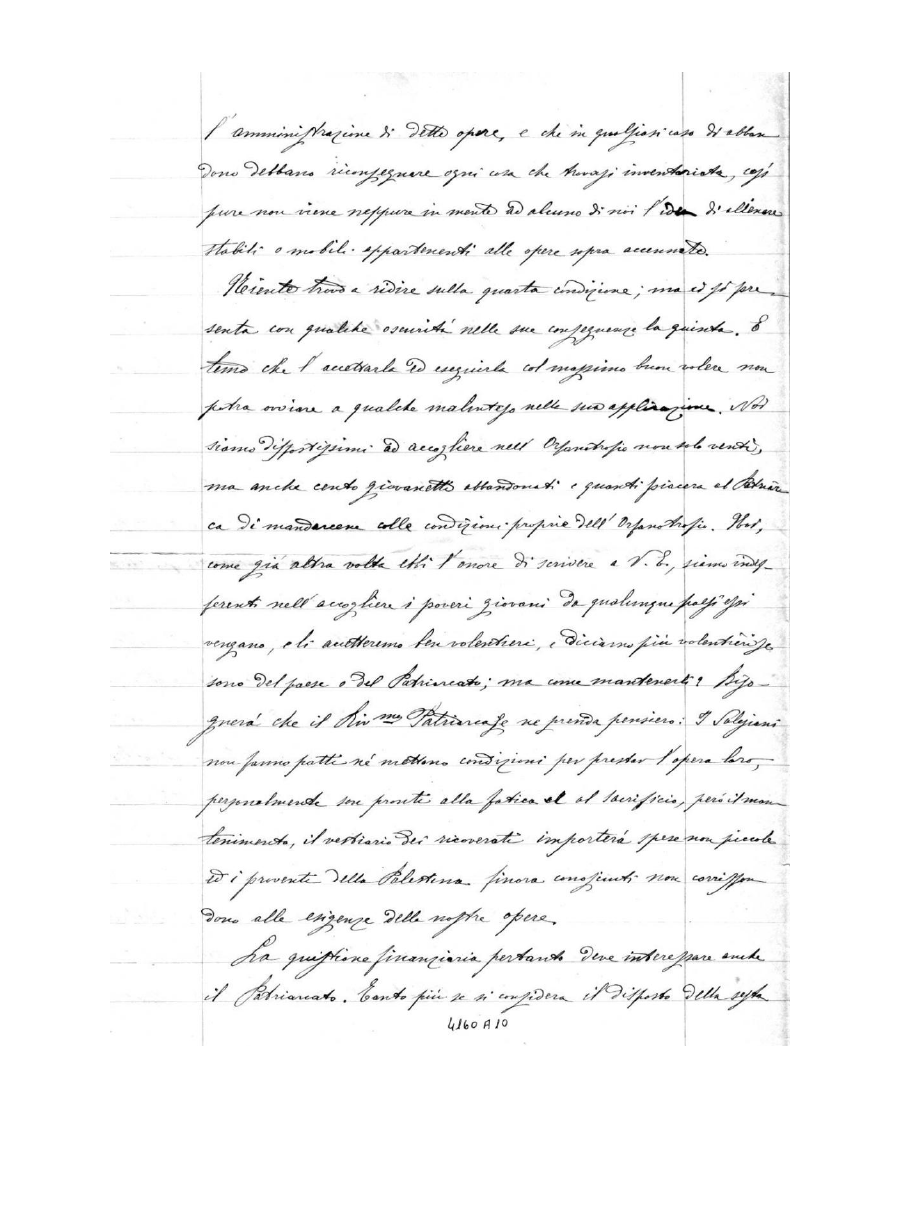 l'amministrazione di dette opere, e che in qualsiasi caso di abban
dono debbano riconsegnare ogni cosa che trovasi inventariata, così
pure non viene neppure in mente ad alcuno di noi l'idea di alienare
stabili o mobili appartenenti alle opere sopra accennate.
Niente trovo a ridire sulla quarta condizione; ma ci si pre-
senta con qualche oscurità nelle sue conseguenze la quinta. E
temo che l'accettarla ed eseguirla col massimo buon volere non
potra ovviare a qualche malinteso nella sua applicazione. Noi
siamo dispostissimi ad accogliere nell'Orfanotrofio non solo venti,
ma anche cento giovanetti abbandonati e quanti piacera al Patriar
ca di mandarcene colle condizioni proprie dell'Orfanotrofio. Noi,
come già altra volta ebbi l'onore di scrivere a V. E., siamo indif-
ferenti nell'accogliere i poveri giovani da qualunque paesi essi
vengano, e li accetteremo ben volentieri, e diciamo più volentieri se
sono del paese o del Patriarcato; ma come mantenerli? Biso-
gnerà che il Rev.mo Patriarca se ne prenda pensiero: I Salesiani
non fanno patti nè mettono condizioni per prestar l'opera loro,
personalmente son pronti alla fatica ed al sacrificio, però il man-
tenimento, il vestiario dei ricoverati importerà spese non piccole
ed i proventi della Palestina finora conosciuti non corrispon
dono alle esigenze delle nostre opere.
La quistione finanziaria pertanto deve interessare anche
il Patriarcato. Tanto più se si considera il disposto della sesta
4160 A 10